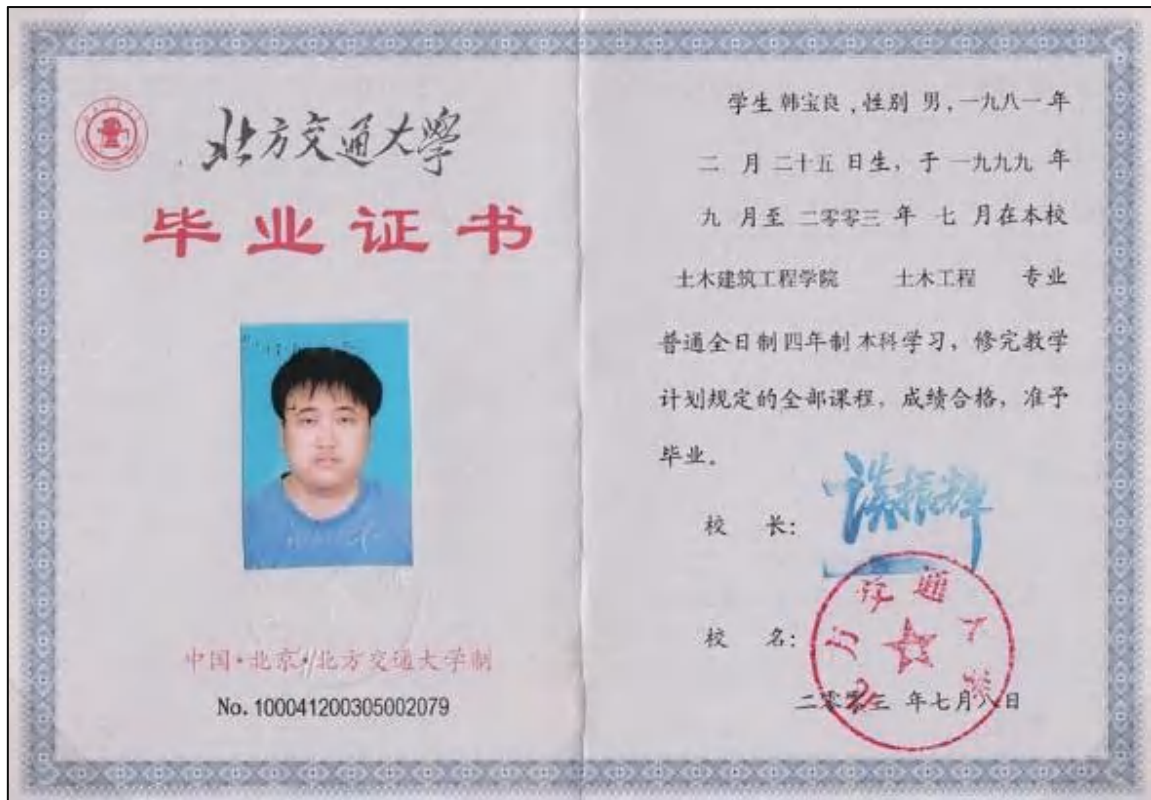 北方交通大學
毕业证书
中国·北京·北方交通大学制
No. 100041200305002079
学生 韩宝良，性别 男，一九八一 年
二 月 二十五 日生，于 一九九九 年
九 月至 二零零三 年 七 月在本校
土木建筑工程学院 土木工程 专业
普通全日制四年制本科学习，修完教学
计划规定的全部课程，成绩合格，准予
毕业。
校 长：
校 名：
北方交通大学
二零零三 年七月八日